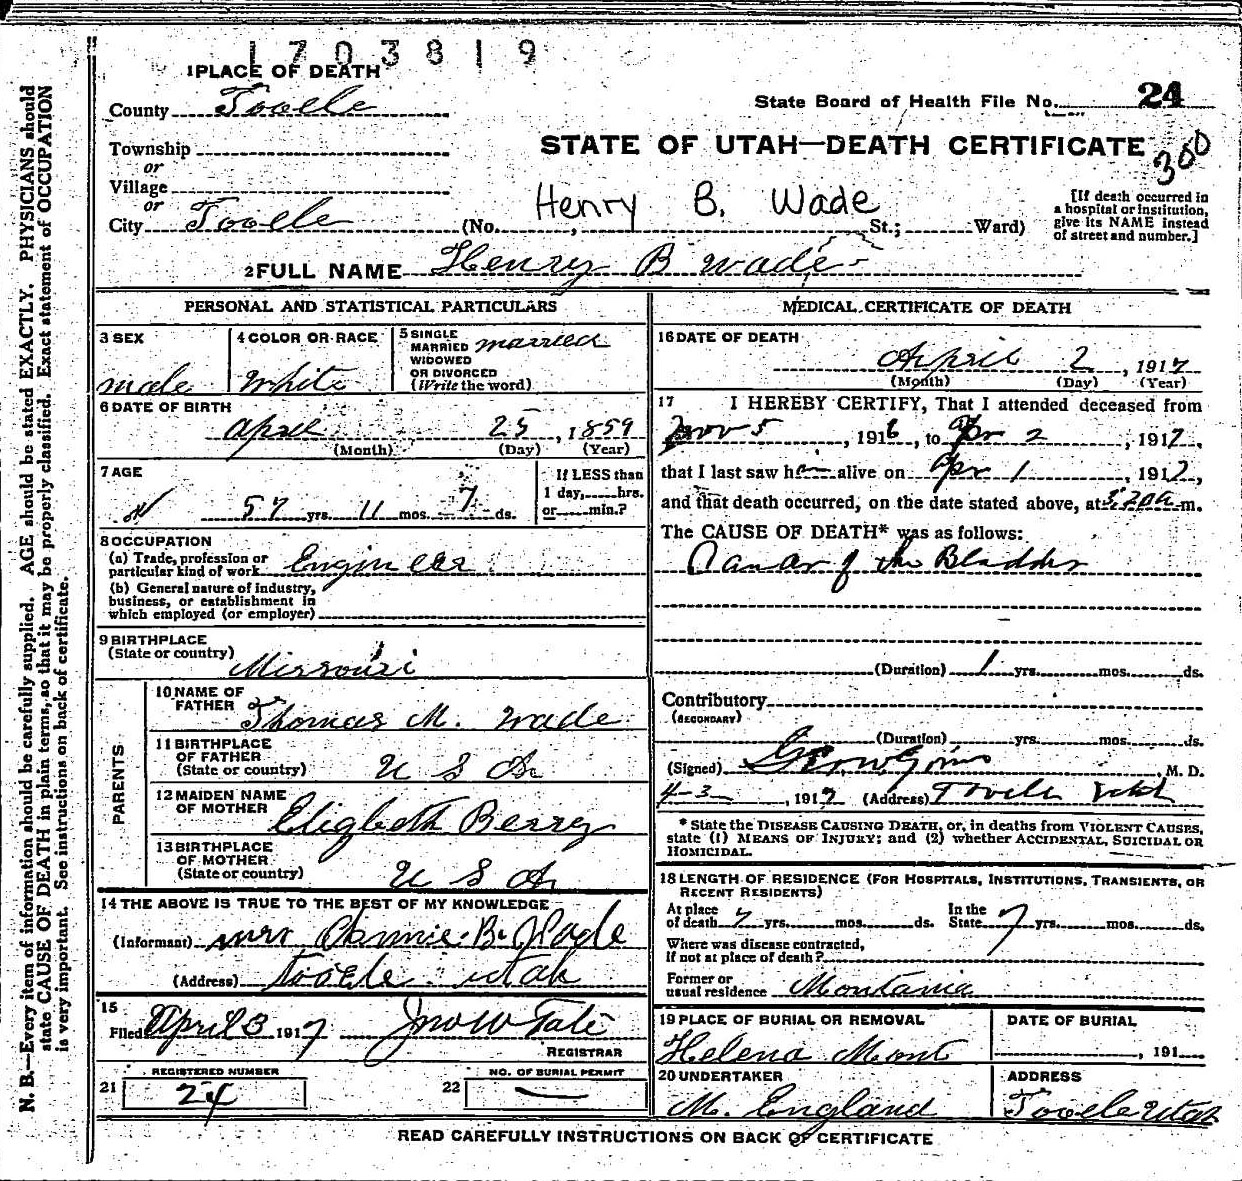 1703819
1 PLACE OF DEATH
County Tooele
State Board of Health File No. 24
STATE OF UTAH—DEATH CERTIFICATE
300
Township
or
Village
or
City Tooele (No. , St.; Ward)
Henry B. Wade
[If death occurred in
a hospital or institution,
give its NAME instead
of street and number.]
2 FULL NAME Henry B Wade
PERSONAL AND STATISTICAL PARTICULARS
3 SEX
male
4 COLOR OR RACE
White
5 SINGLE
MARRIED
WIDOWED
OR DIVORCED
(Write the word)
married
6 DATE OF BIRTH
April 25, 1859
(Month) (Day) (Year)
7 AGE
57 yrs. 11 mos. 7 ds.
If LESS than
1 day, hrs.
or min.?
8 OCCUPATION
(a) Trade, profession or
particular kind of work Engineer
(b) General nature of industry,
business, or establishment in
which employed (or employer)
9 BIRTHPLACE
(State or country)
Missouri
PARENTS
10 NAME OF
FATHER
Thomas M. Wade
11 BIRTHPLACE
OF FATHER
(State or country)
U S A
12 MAIDEN NAME
OF MOTHER
Eligbeth Berry
13 BIRTHPLACE
OF MOTHER
(State or country)
U S A
14 THE ABOVE IS TRUE TO THE BEST OF MY KNOWLEDGE
(Informant) Mrs Annie B. Wade
(Address) Tooele Utah
15
Filed April 3 1917 Jno W Tate
REGISTRAR
REGISTERED NUMBER
21 24
NO. OF BURIAL PERMIT
22 —
MEDICAL CERTIFICATE OF DEATH
16 DATE OF DEATH
April 2, 1917
(Month) (Day) (Year)
17 I HEREBY CERTIFY, That I attended deceased from
Nov 5, 1916, to Apr 2, 1917,
that I last saw him alive on Apr 1, 1917,
and that death occurred, on the date stated above, at 3:20 a m.
The CAUSE OF DEATH* was as follows:
Cancer of the Bladder
(Duration) 1 yrs. mos. ds.
Contributory
(SECONDARY)
(Duration) yrs. mos. ds.
(Signed) , M. D.
4-3, 1917 (Address) Tooele Utah
* State the DISEASE CAUSING DEATH, or, in deaths from VIOLENT CAUSES,
state (1) MEANS OF INJURY; and (2) whether ACCIDENTAL, SUICIDAL OR
HOMICIDAL.
18 LENGTH OF RESIDENCE (FOR HOSPITALS, INSTITUTIONS, TRANSIENTS, OR
RECENT RESIDENTS)
At place
of death 7 yrs. mos. ds.
In the
State 7 yrs. mos. ds.
Where was disease contracted,
if not at place of death?
Former or
usual residence Montania
19 PLACE OF BURIAL OR REMOVAL
Helena Mont
DATE OF BURIAL
, 191
20 UNDERTAKER
M. England
ADDRESS
Tooele Utah
READ CAREFULLY INSTRUCTIONS ON BACK OF CERTIFICATE
N. B.—Every item of information should be carefully supplied. AGE should be stated EXACTLY. PHYSICIANS should
state CAUSE OF DEATH in plain terms, so that it may be properly classified. Exact statement of OCCUPATION
is very important. See instructions on back of certificate.